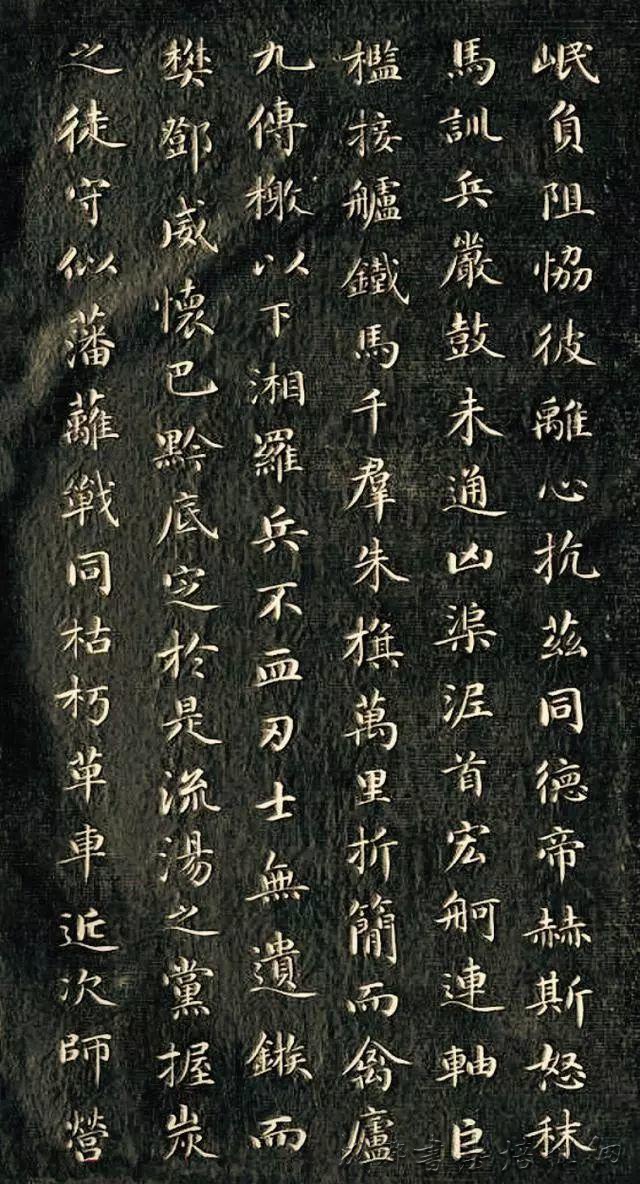 岷負阻恊彼離心抗茲同德帝赫斯怒秣
馬訓兵嚴鼓未通凶渠泥首宏舸連軸巨
檻接艫鐵馬千羣朱旗萬里折簡而禽廬
九傳檄以下湘羅兵不血刃士無遺鏃而
樊鄧威懷巴黔底定於是流湯之黨握炭
之徒守似藩蘺戰同枯朽革車近次師營